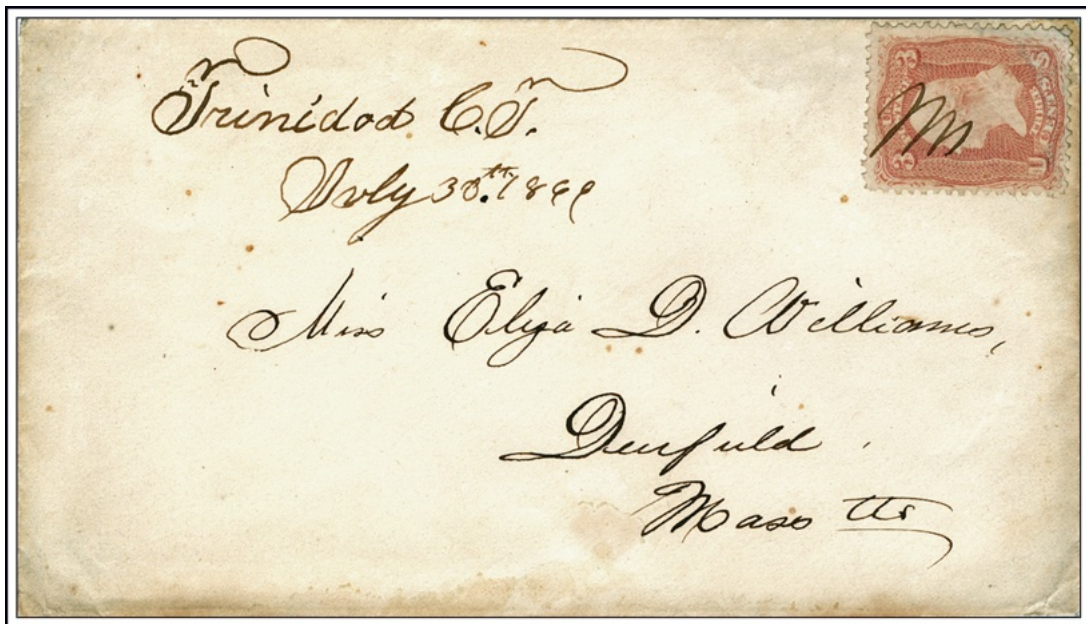 Trinidad C.T.
July 30th. 1869
Miss Eliza D. Williams,
Deerfield.
Mass tts